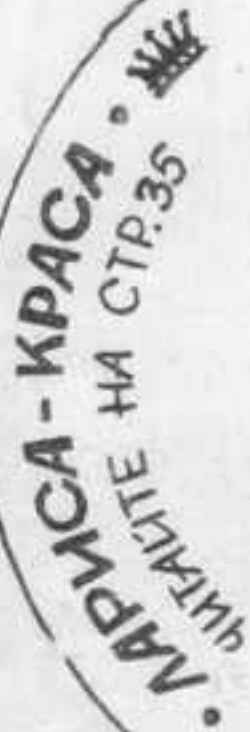 • ЛАРИСА-КРАСА •
ЧИТАЙТЕ НА СТР.35